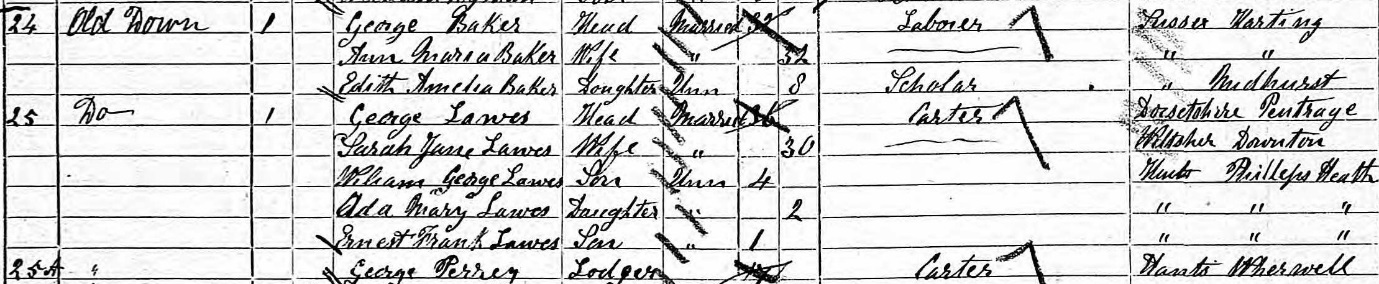 24 Old Down 1 George Baker Head Married 32 Laborer Sussex Harting
Ann Maria Baker Wife " 32 " "
Edith Amelia Baker Daughter Unn 8 Scholar " Midhurst
25 Do 1 George Lawes Head Married 36 Carter Dorsetshire Pentrage
Sarah Jane Lawes Wife " 30 Wiltsher Downton
William George Lawes Son Unn 4 Hants Philleps Heath
Ada Mary Lawes Daughter " 2 " " "
Ernest Frank Lawes Son " 1 " " "
25A " George Perrey Lodger Carter Hants Wherwell